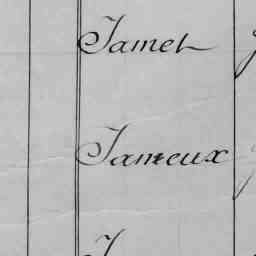 Jamet
Jameux